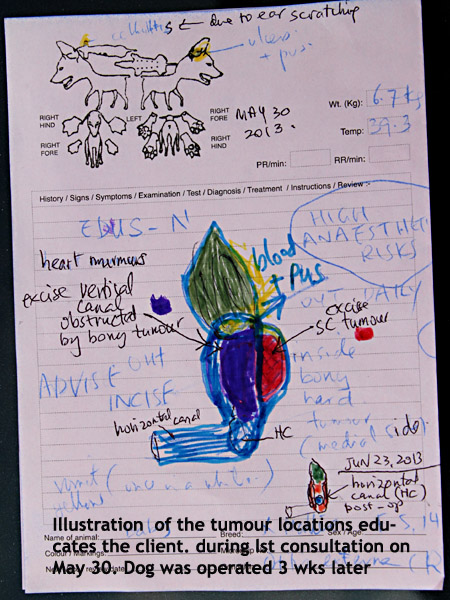 cellulitis ← due to ear scratching
ulcers
+ pus
RIGHT HIND
LEFT
RIGHT FORE
RIGHT FORE
RIGHT HIND
MAY 30
2013.
Wt. (Kg): 6.7 kg
Temp: 39.3
PR/min:
RR/min:
History / Signs / Symptoms / Examination / Test / Diagnosis / Treatment / Instructions / Review :-
HIGH
ANAESTHETIC
RISKS
heart murmurs
blood
+ pus
OUT DAILY
excise vertical
canal
obstructed
by bony tumour
excise
SC tumour
ADVISE
INCISE
inside
bony
hard
tumour
(medial side)
horizontal canal
HC
JUN 23, 2013
horizontal
canal (HC)
post-op
vomit (once in a while..)
yellow
Name of animal:
Breed:
Sex / Age:
Colour / Markings:
Illustration of the tumour locations edu-
cates the client. during 1st consultation on
May 30. Dog was operated 3 wks later